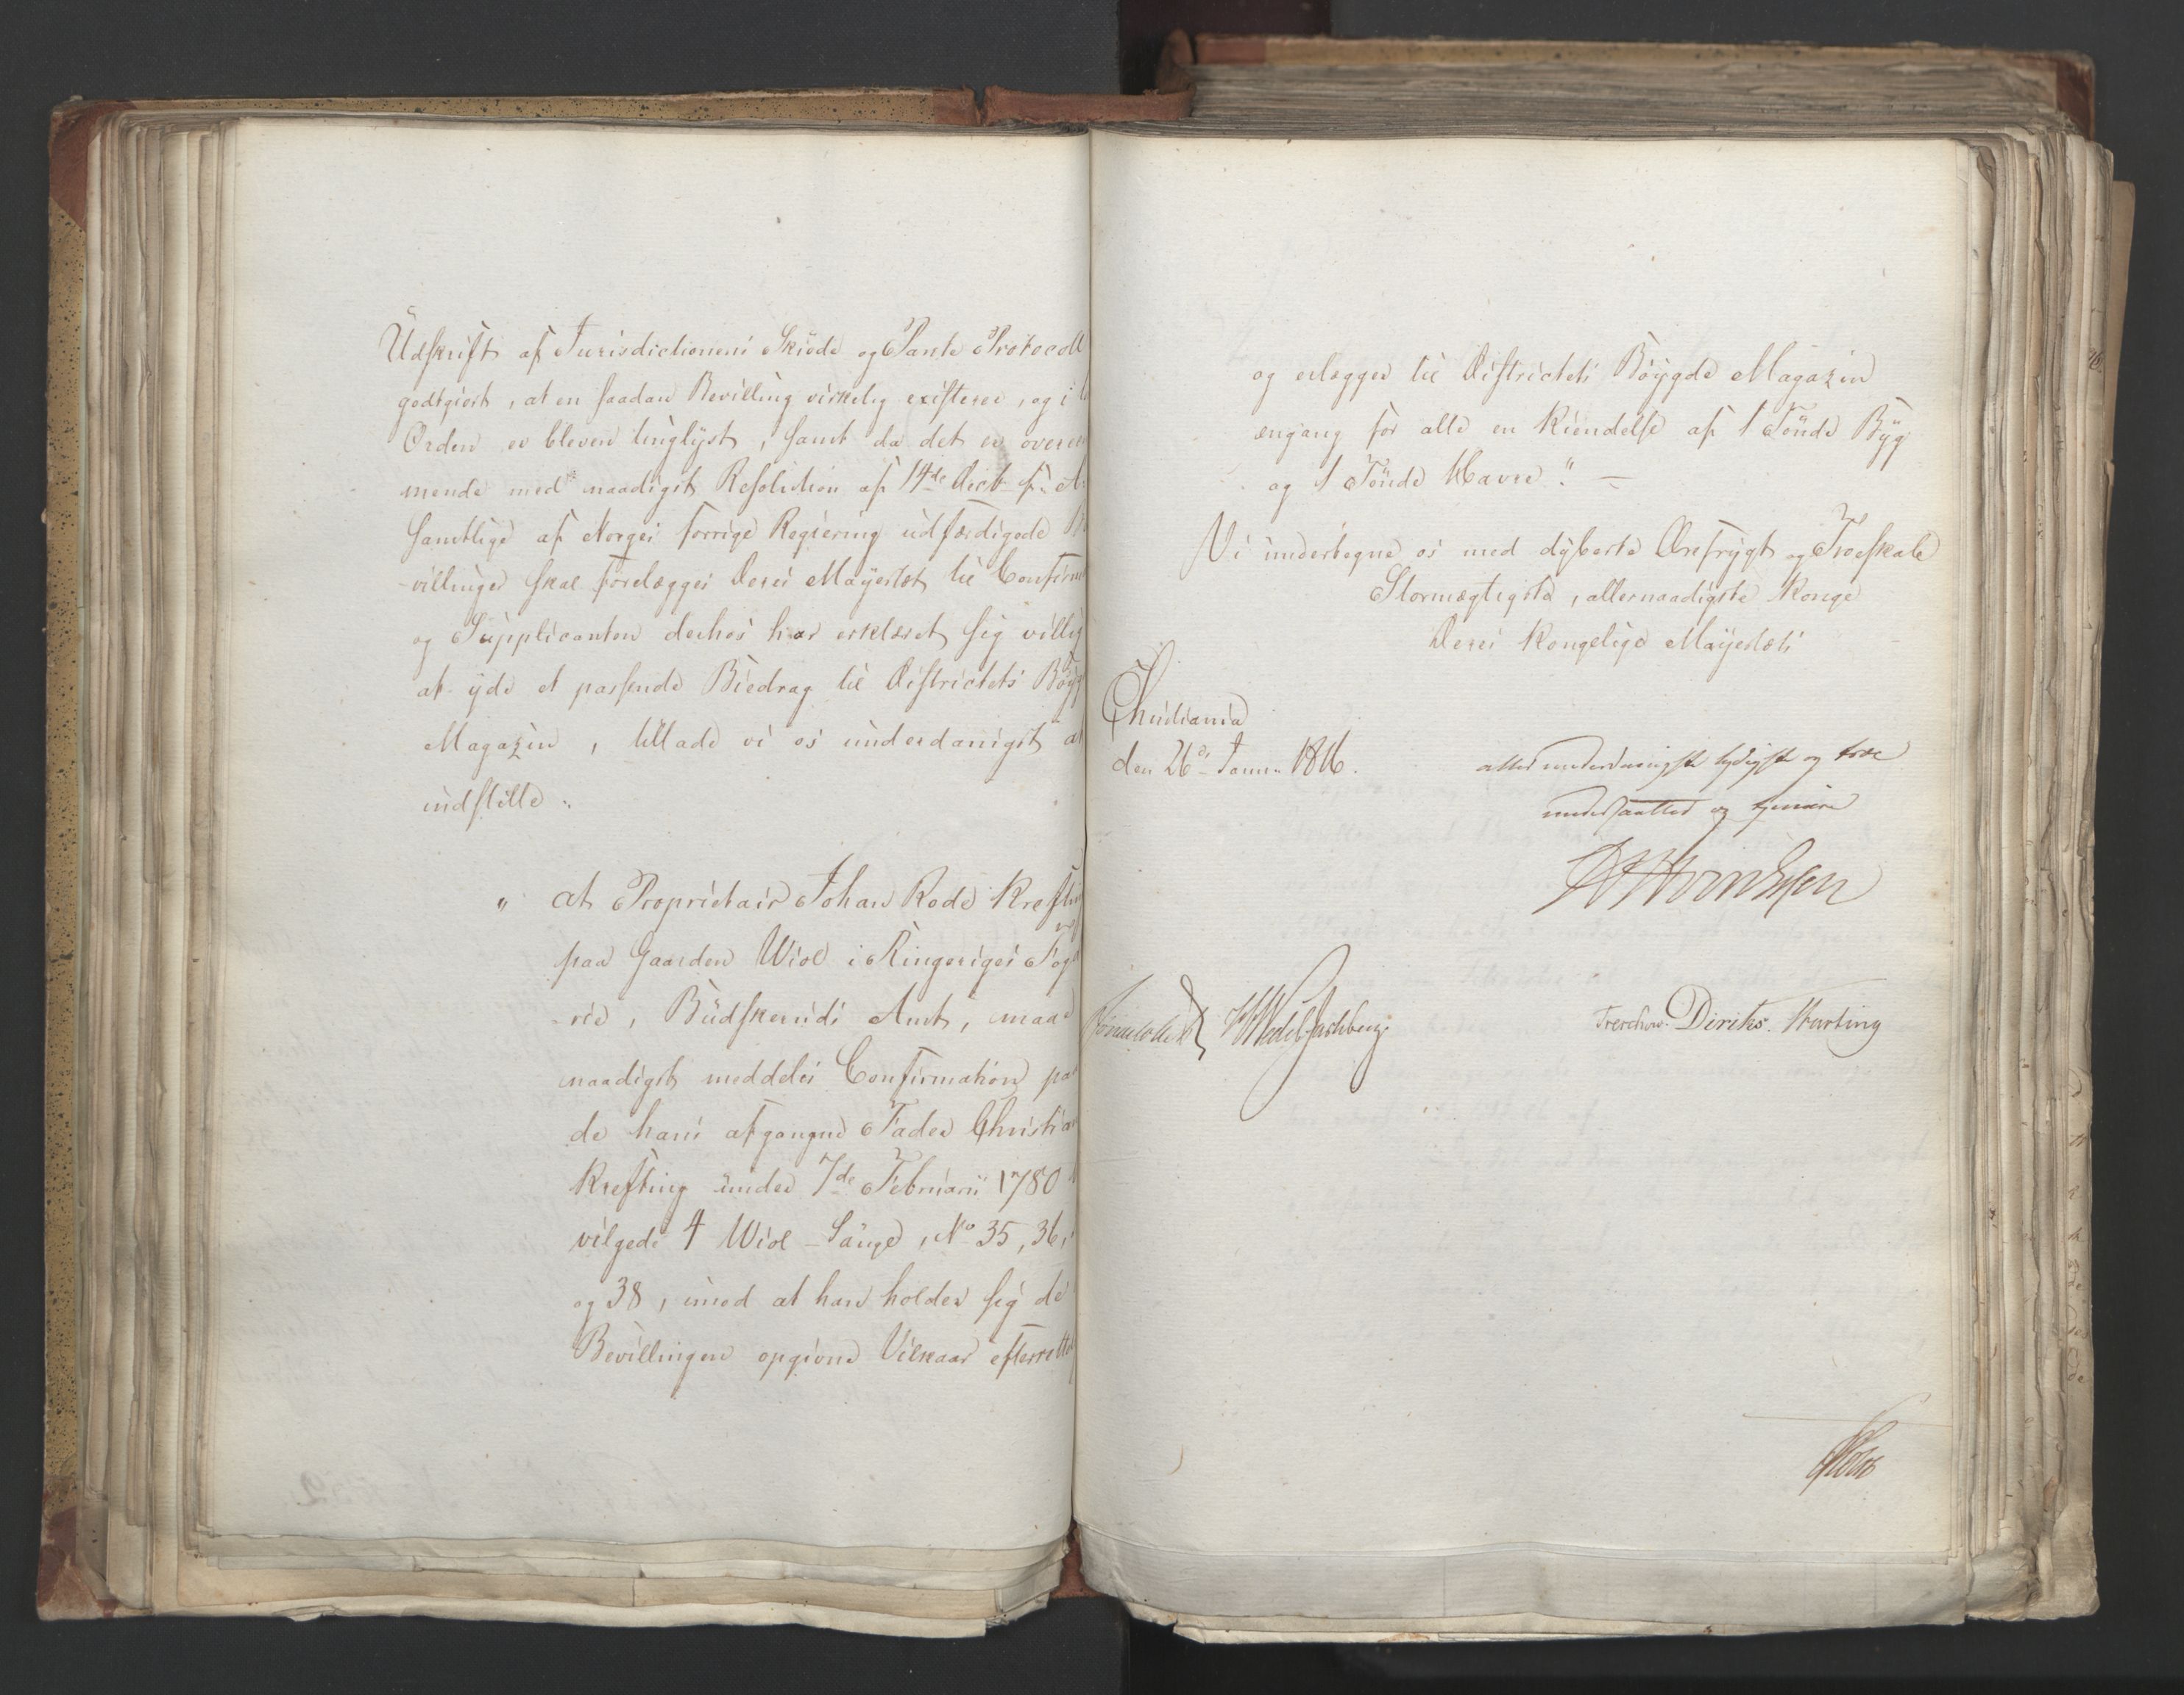 Udskrift af Jurisdictionens Skiøde og Pante Protocoll
godtgiort, at en saadan Bevilling virkelig existerer, og i
Orden er bleven tinglyst, samt da det er overeens
mende med naadigst Resolution af 14de Decb. f. A.
samtlige af Norges forrige Regiering udfærdigede Be
-villinger skal forelægges Deres Mayestæt til Confirm
og Supplicanten derhos har erklæret sig villig
at yde et passende Biedrag til Districtets Bøyg
Magazin, tillade vi os underdanigst at
indstille:
" at Proprietair Johan Rode Krefting
paa Gaarden Wiol i Ringeriges Fog
rie, Budskeruds Amt, maae
naadigst meddeles Confirmation paa
de hans afgangne Fader Christian
Krefting under 7de Februarii 1780
vilgede 4 Wiol-Sauge, No 35, 36,
og 38, imod at han holder sig de
Bevillingen opgivne Vilkaar efterrettel
og erlægger til Districtets Bøygde Magazin
engang for alle en Kiendelse af 1 Tønde Byg
og 1 Tønde Havre." —
Vi undertegne os med dybeste Ærefrygt og Troeskab
Stormægtigste, allernaadigste Konge
Deres Kongelige Mayestæts
Christiania
den 26de Janu. 1816.
allerunderdanigste lydigste og troe
undersaatter og tjenere
Sommerhielm
HWedel Jarlsberg
Treschow. Diriks. Krefting
Holst